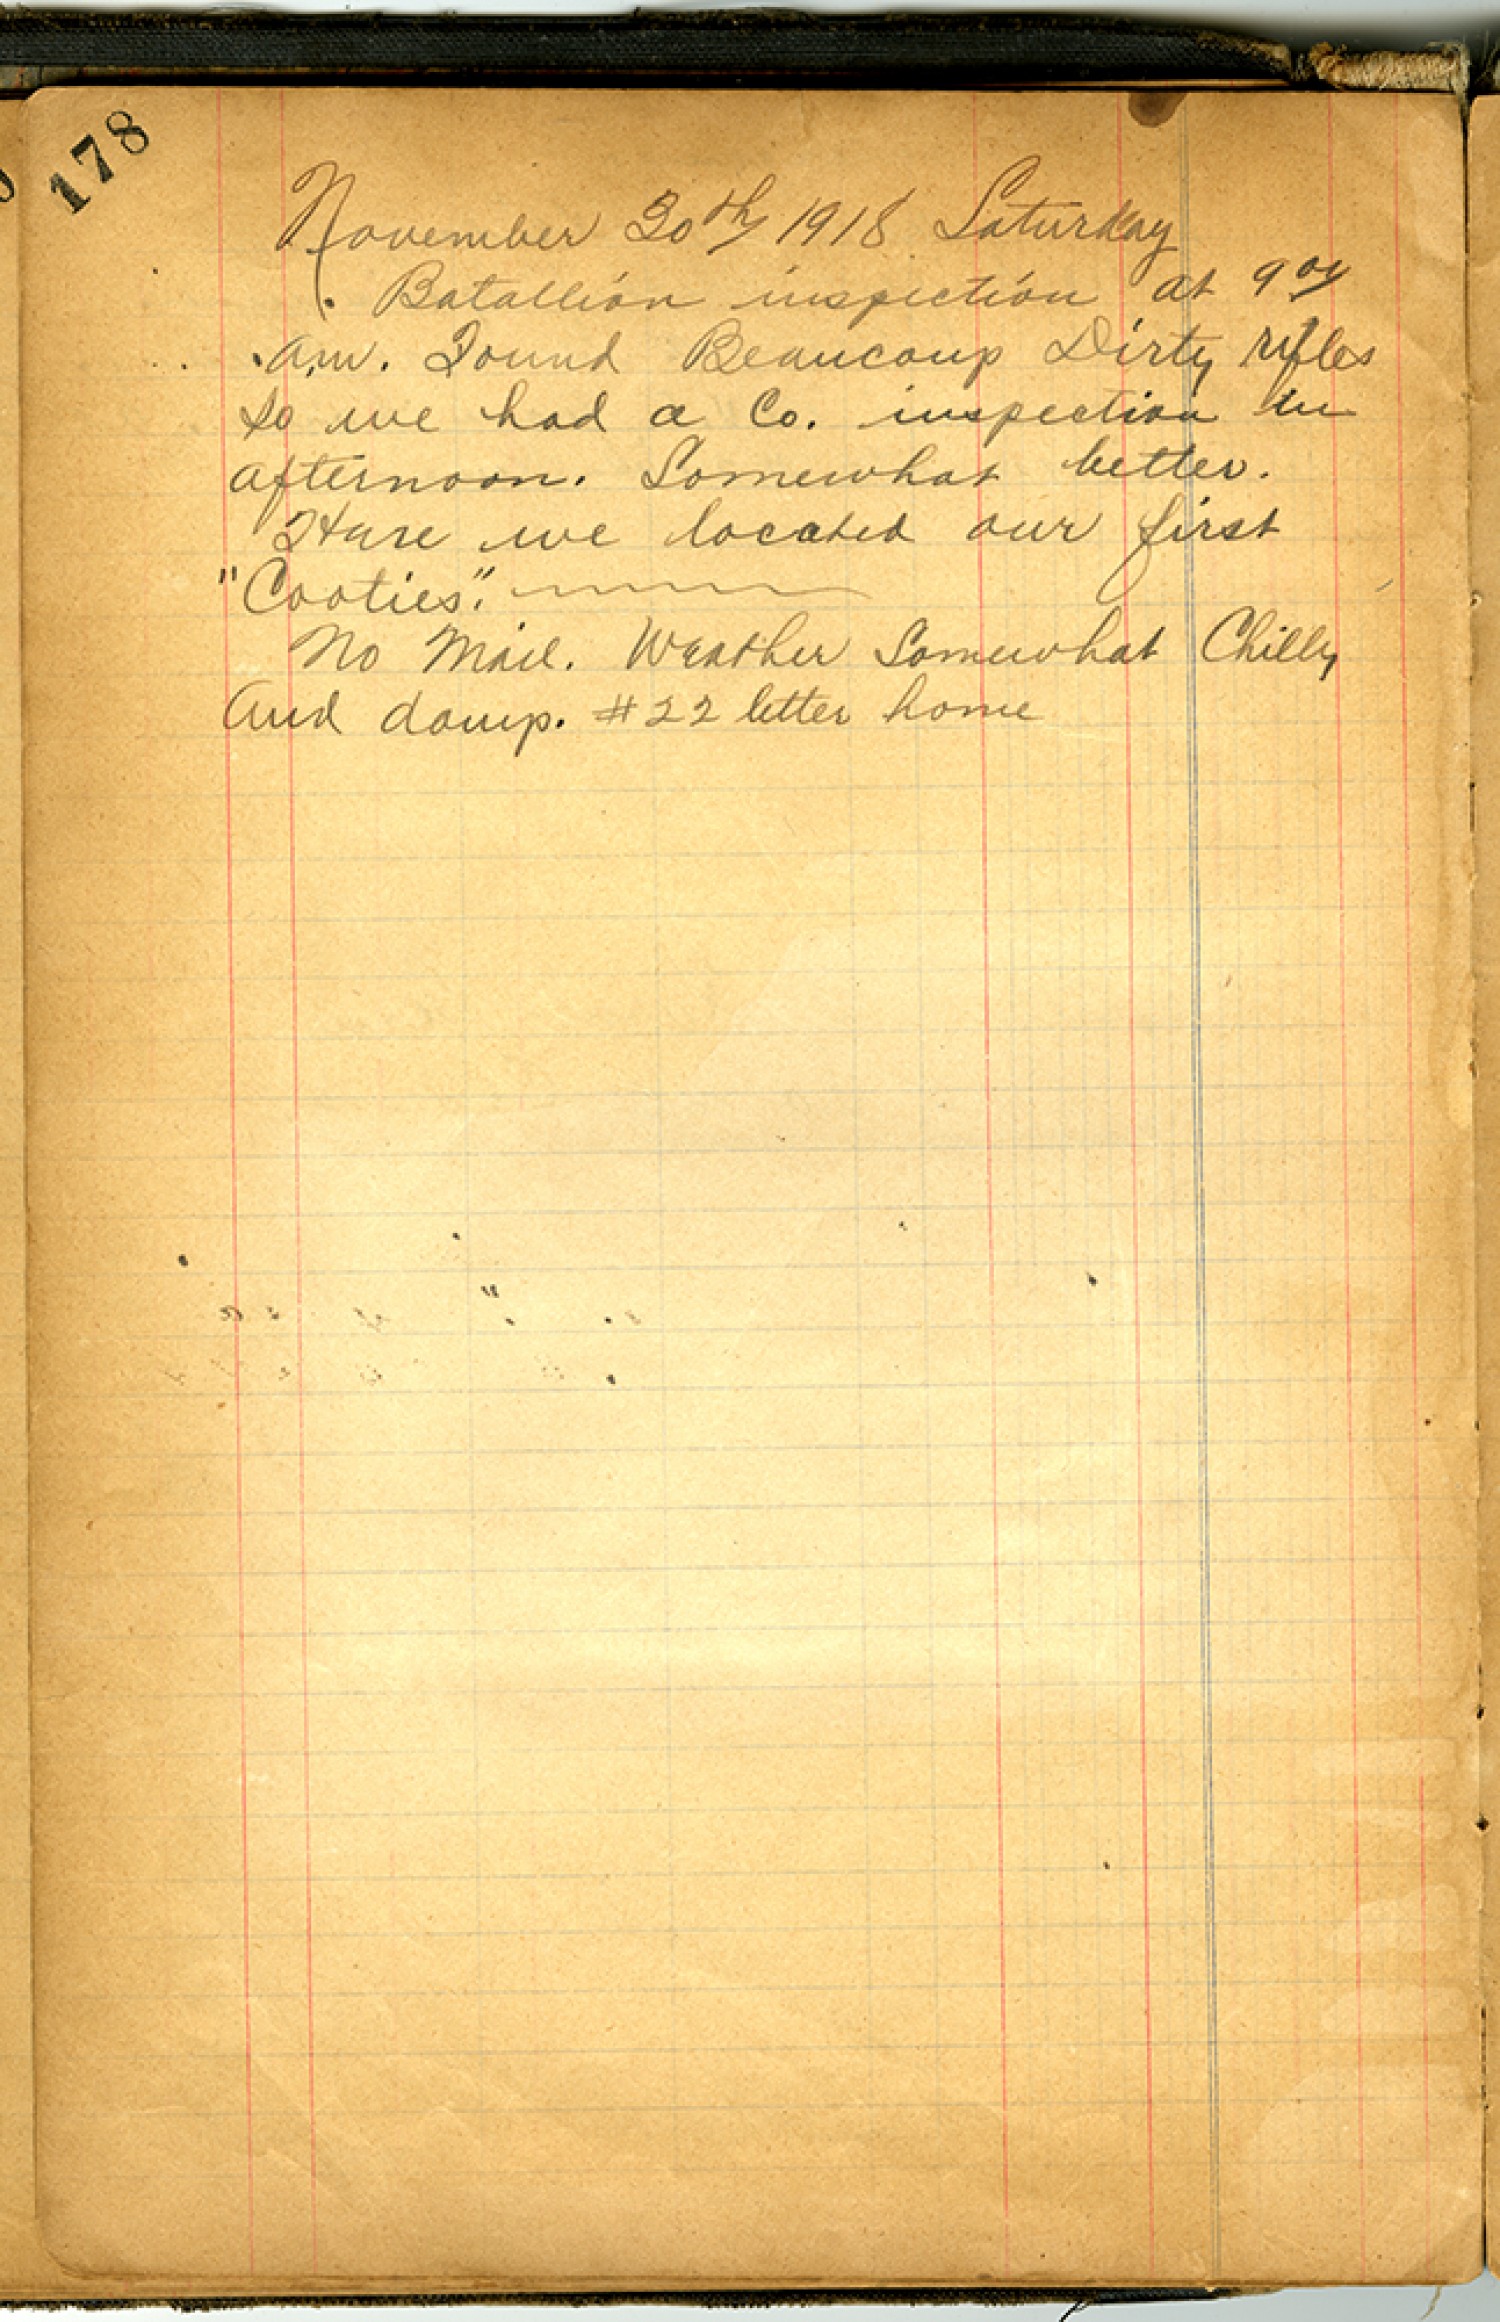 178
November 30th 1918 Saturday
Batallion inspection at 9 00
a.m. Found Beaucoup Dirty rifles
so we had a Co. inspection in
afternoon. Somewhat better.
Here we located our first
"Cooties".
No Mail. Weather Somewhat Chilly
And damp. #22 letter home